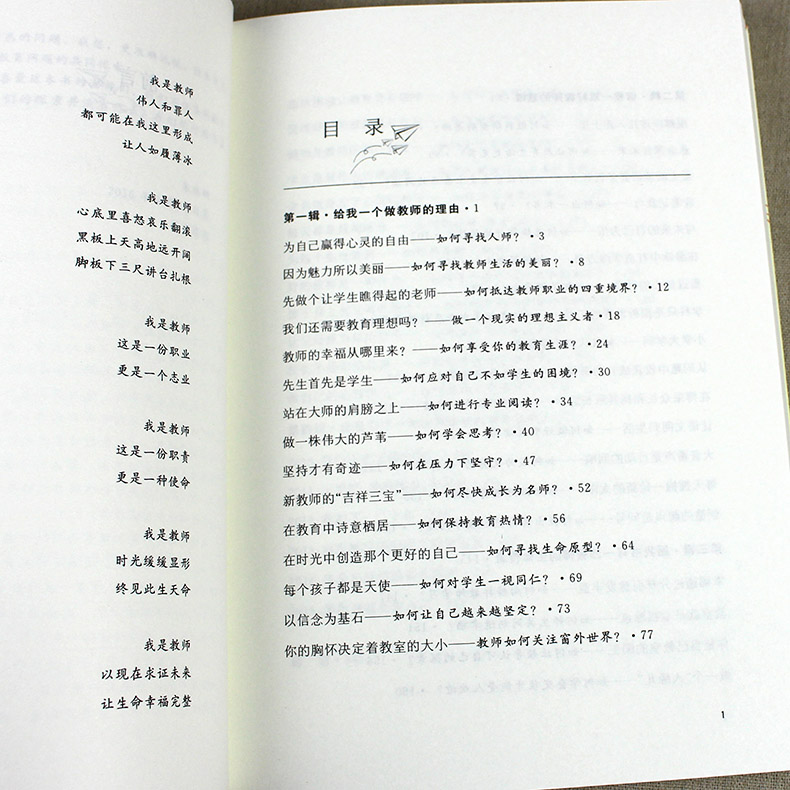 我是教师
伟人和罪人
都可能在我这里形成
让人如履薄冰
我是教师
心底里喜怒哀乐翻滚
黑板上天高地远开阔
脚板下三尺讲台扎根
我是教师
这是一份职业
更是一个志业
我是教师
这是一份职责
更是一种使命
我是教师
时光缓缓显形
终见此生天命
我是教师
以现在求证未来
让生命幸福完整
目 录
第一辑·给我一个做教师的理由·1
为自己赢得心灵的自由——如何寻找人师？·3
因为魅力所以美丽——如何寻找教师生活的美丽？·8
先做个让学生瞧得起的老师——如何抵达教师职业的四重境界？·12
我们还需要教育理想吗？——做一个现实的理想主义者·18
教师的幸福从哪里来？——如何享受你的教育生涯？·24
先生首先是学生——如何应对自己不如学生的困境？·30
站在大师的肩膀之上——如何进行专业阅读？·34
做一株伟大的芦苇——如何学会思考？·40
坚持才有奇迹——如何在压力下坚守？·47
新教师的“吉祥三宝”——如何尽快成长为名师？·52
在教育中诗意栖居——如何保持教育热情？·56
在时光中创造那个更好的自己——如何寻找生命原型？·64
每个孩子都是天使——如何对学生一视同仁？·69
以信念为基石——如何让自己越来越坚定？·73
你的胸怀决定着教室的大小——教师如何关注窗外世界？·77
1